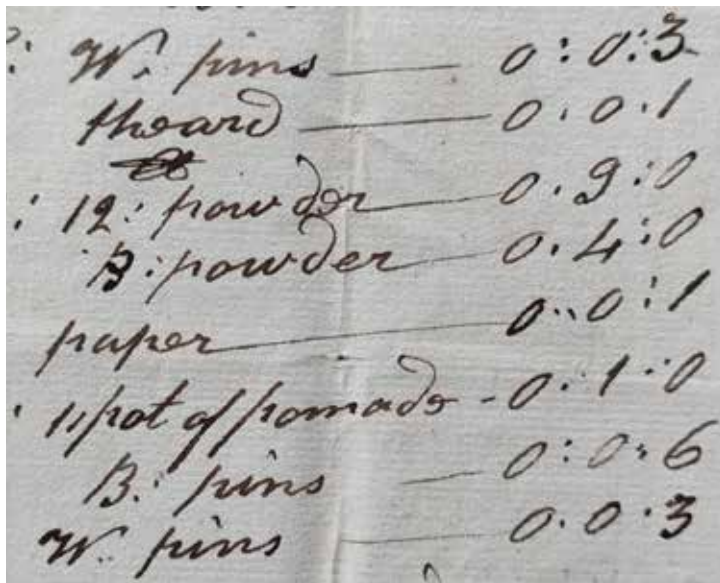 : W. pins — 0:0:3
theard — 0.0.1
: 12: powder — 0.9:0
B:powder — 0.4:0
paper — 0..0:1
1 pot of pomade - 0:1:0
B: pins — 0:0.6
W. pins — 0.0.3